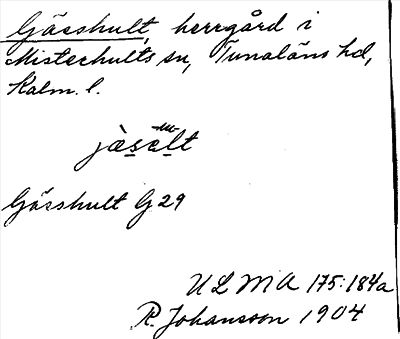 Gässhult, herrgård i
Misterhults sn, Tunaläns hd,
Kalm. l.
jàsalt
Gässhult G 29
ULMA 175:184a
R. Johansson 1904